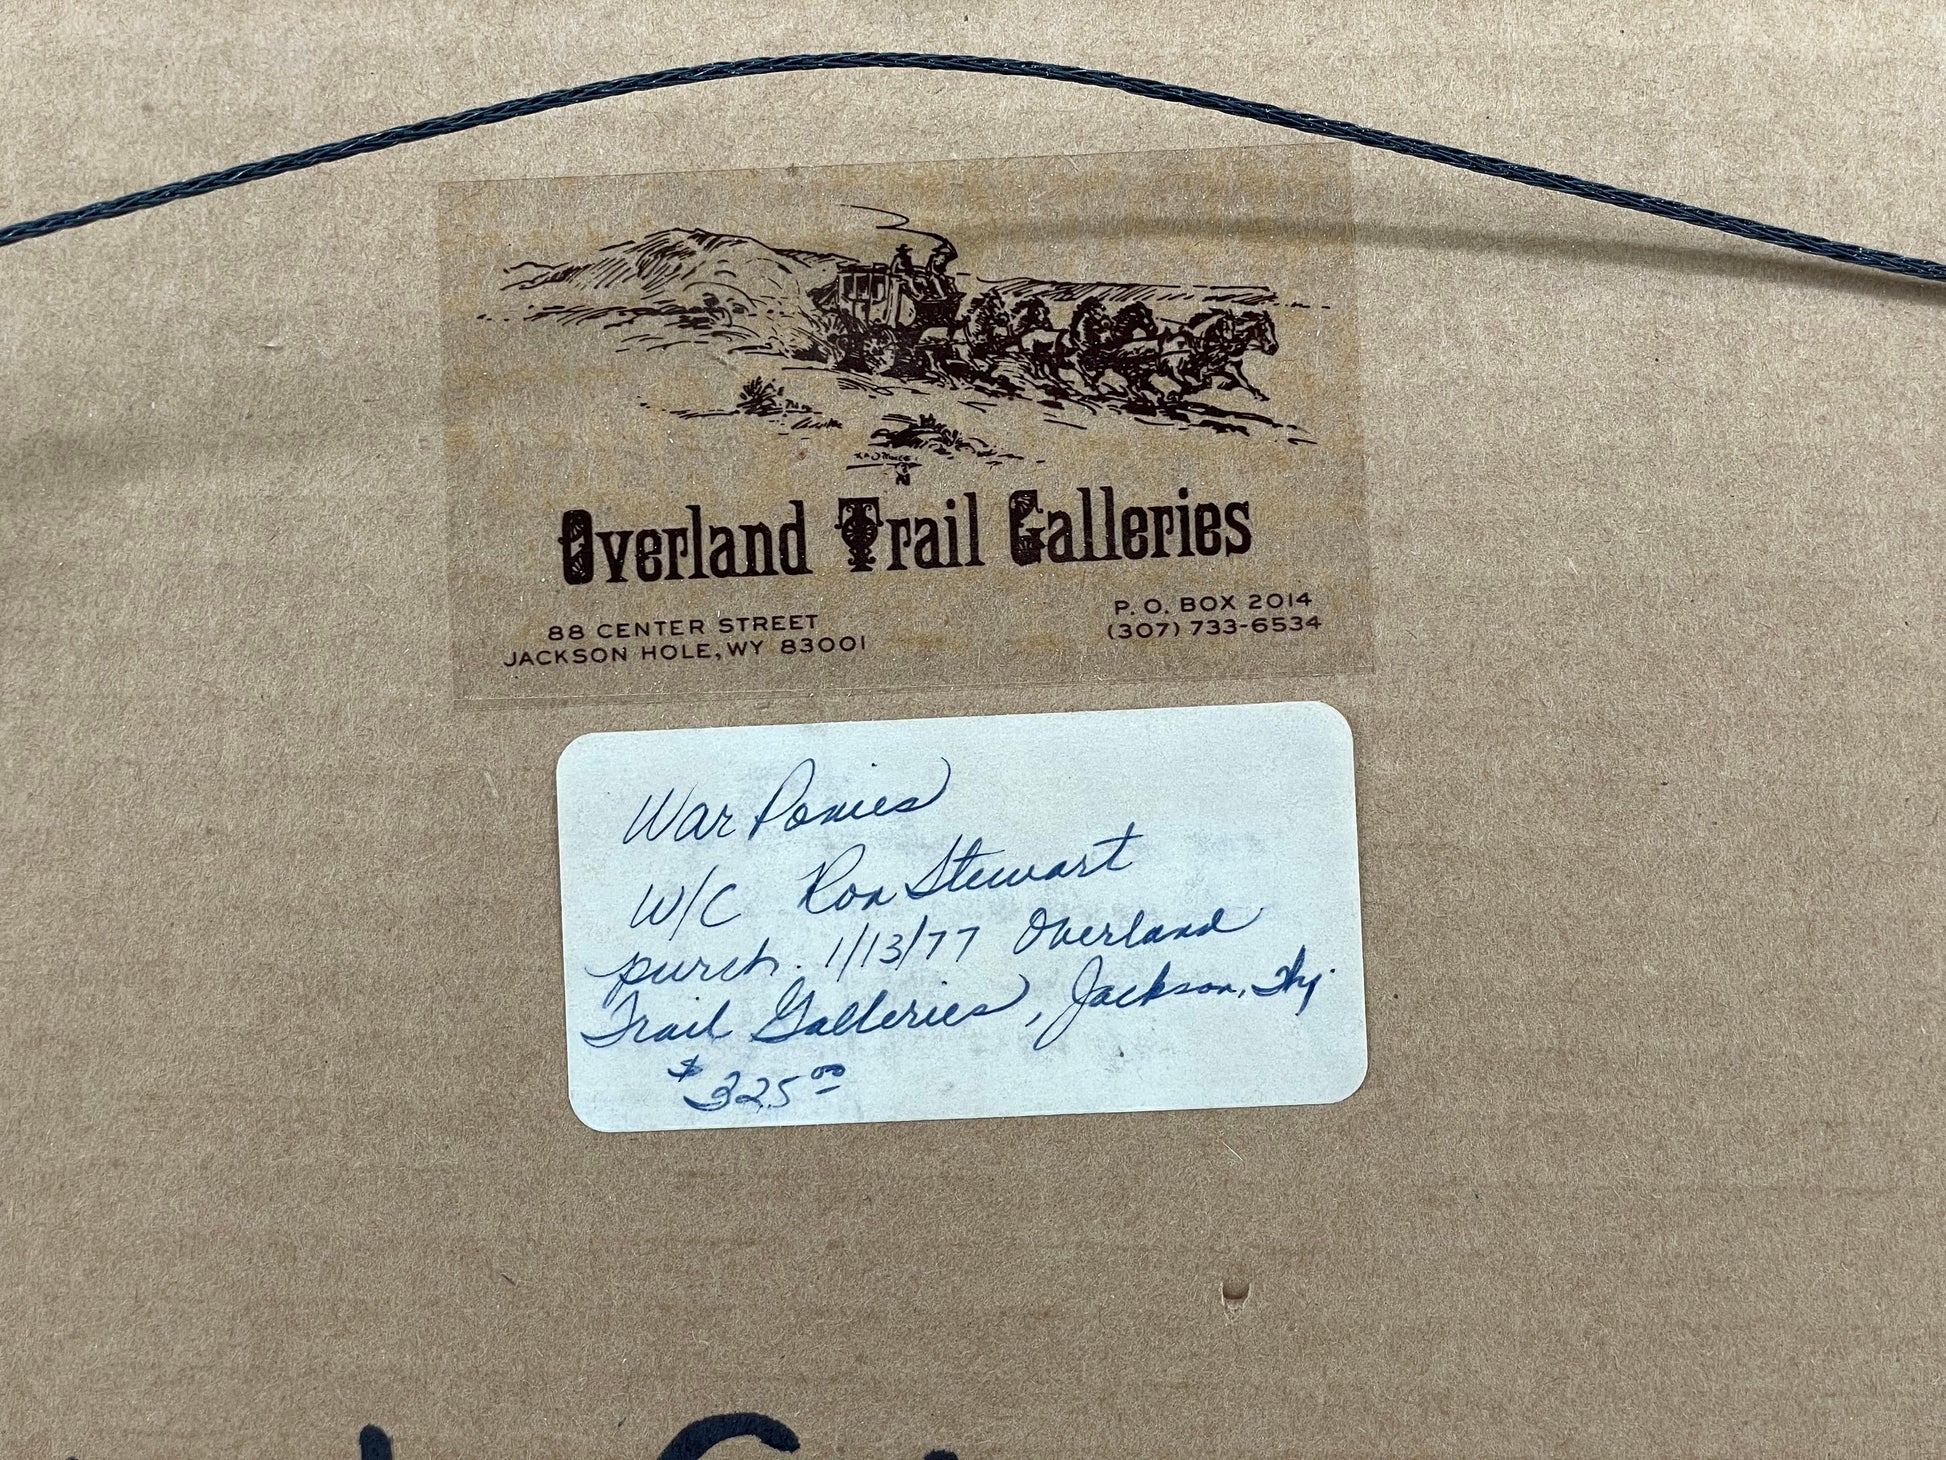 Overland Trail Galleries
88 CENTER STREET
JACKSON HOLE, WY 83001
P. O. BOX 2014
(307) 733-6534
War Ponies
W/C Ron Stewart
purch. 1/13/77 Overland
Trail Galleries, Jackson, Wy.
$325.00